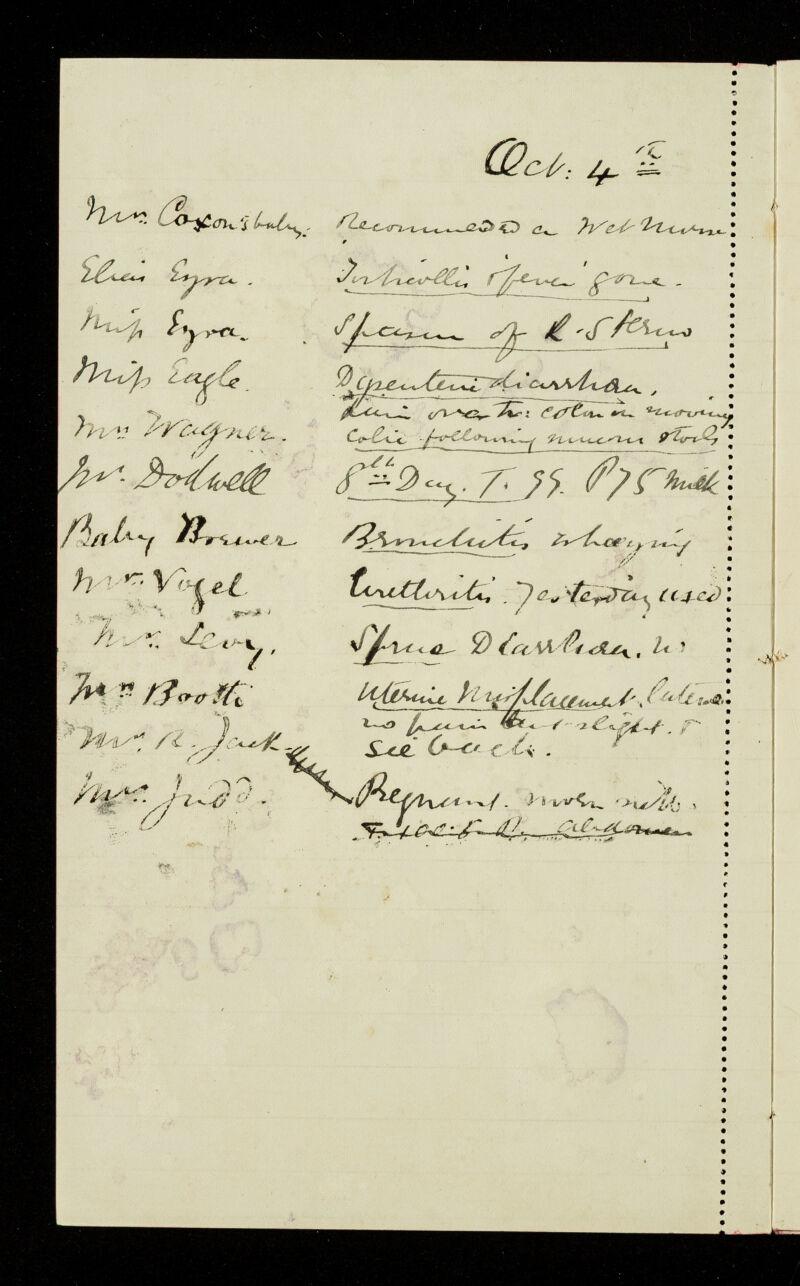 Oct: 4th
Mrs. Coxon's baby. Recommended a Wet Nurse
Elias Ezra. Torticollis & fever gone.
Miss Ezra. Spasm of R. Sterno
Miss Eagle. Dysenteric diarrhoea,
pain over tr: colon in moving
Mrs Wagner. Colic following stools
Mr. Dodwell 8th Day. T. 99. P 75 Milk
Baby Brewer Bronchitis wheezing
Mr. Vogel Urethritis. Yesterday used
Mr. Levy. Sprue Diarrhoea.
Mrs Booth Uterine Misplacement.
no pain but slight
Mrs. R. Jack see back.
Mrs. Judd. Pregnant.
abdomen